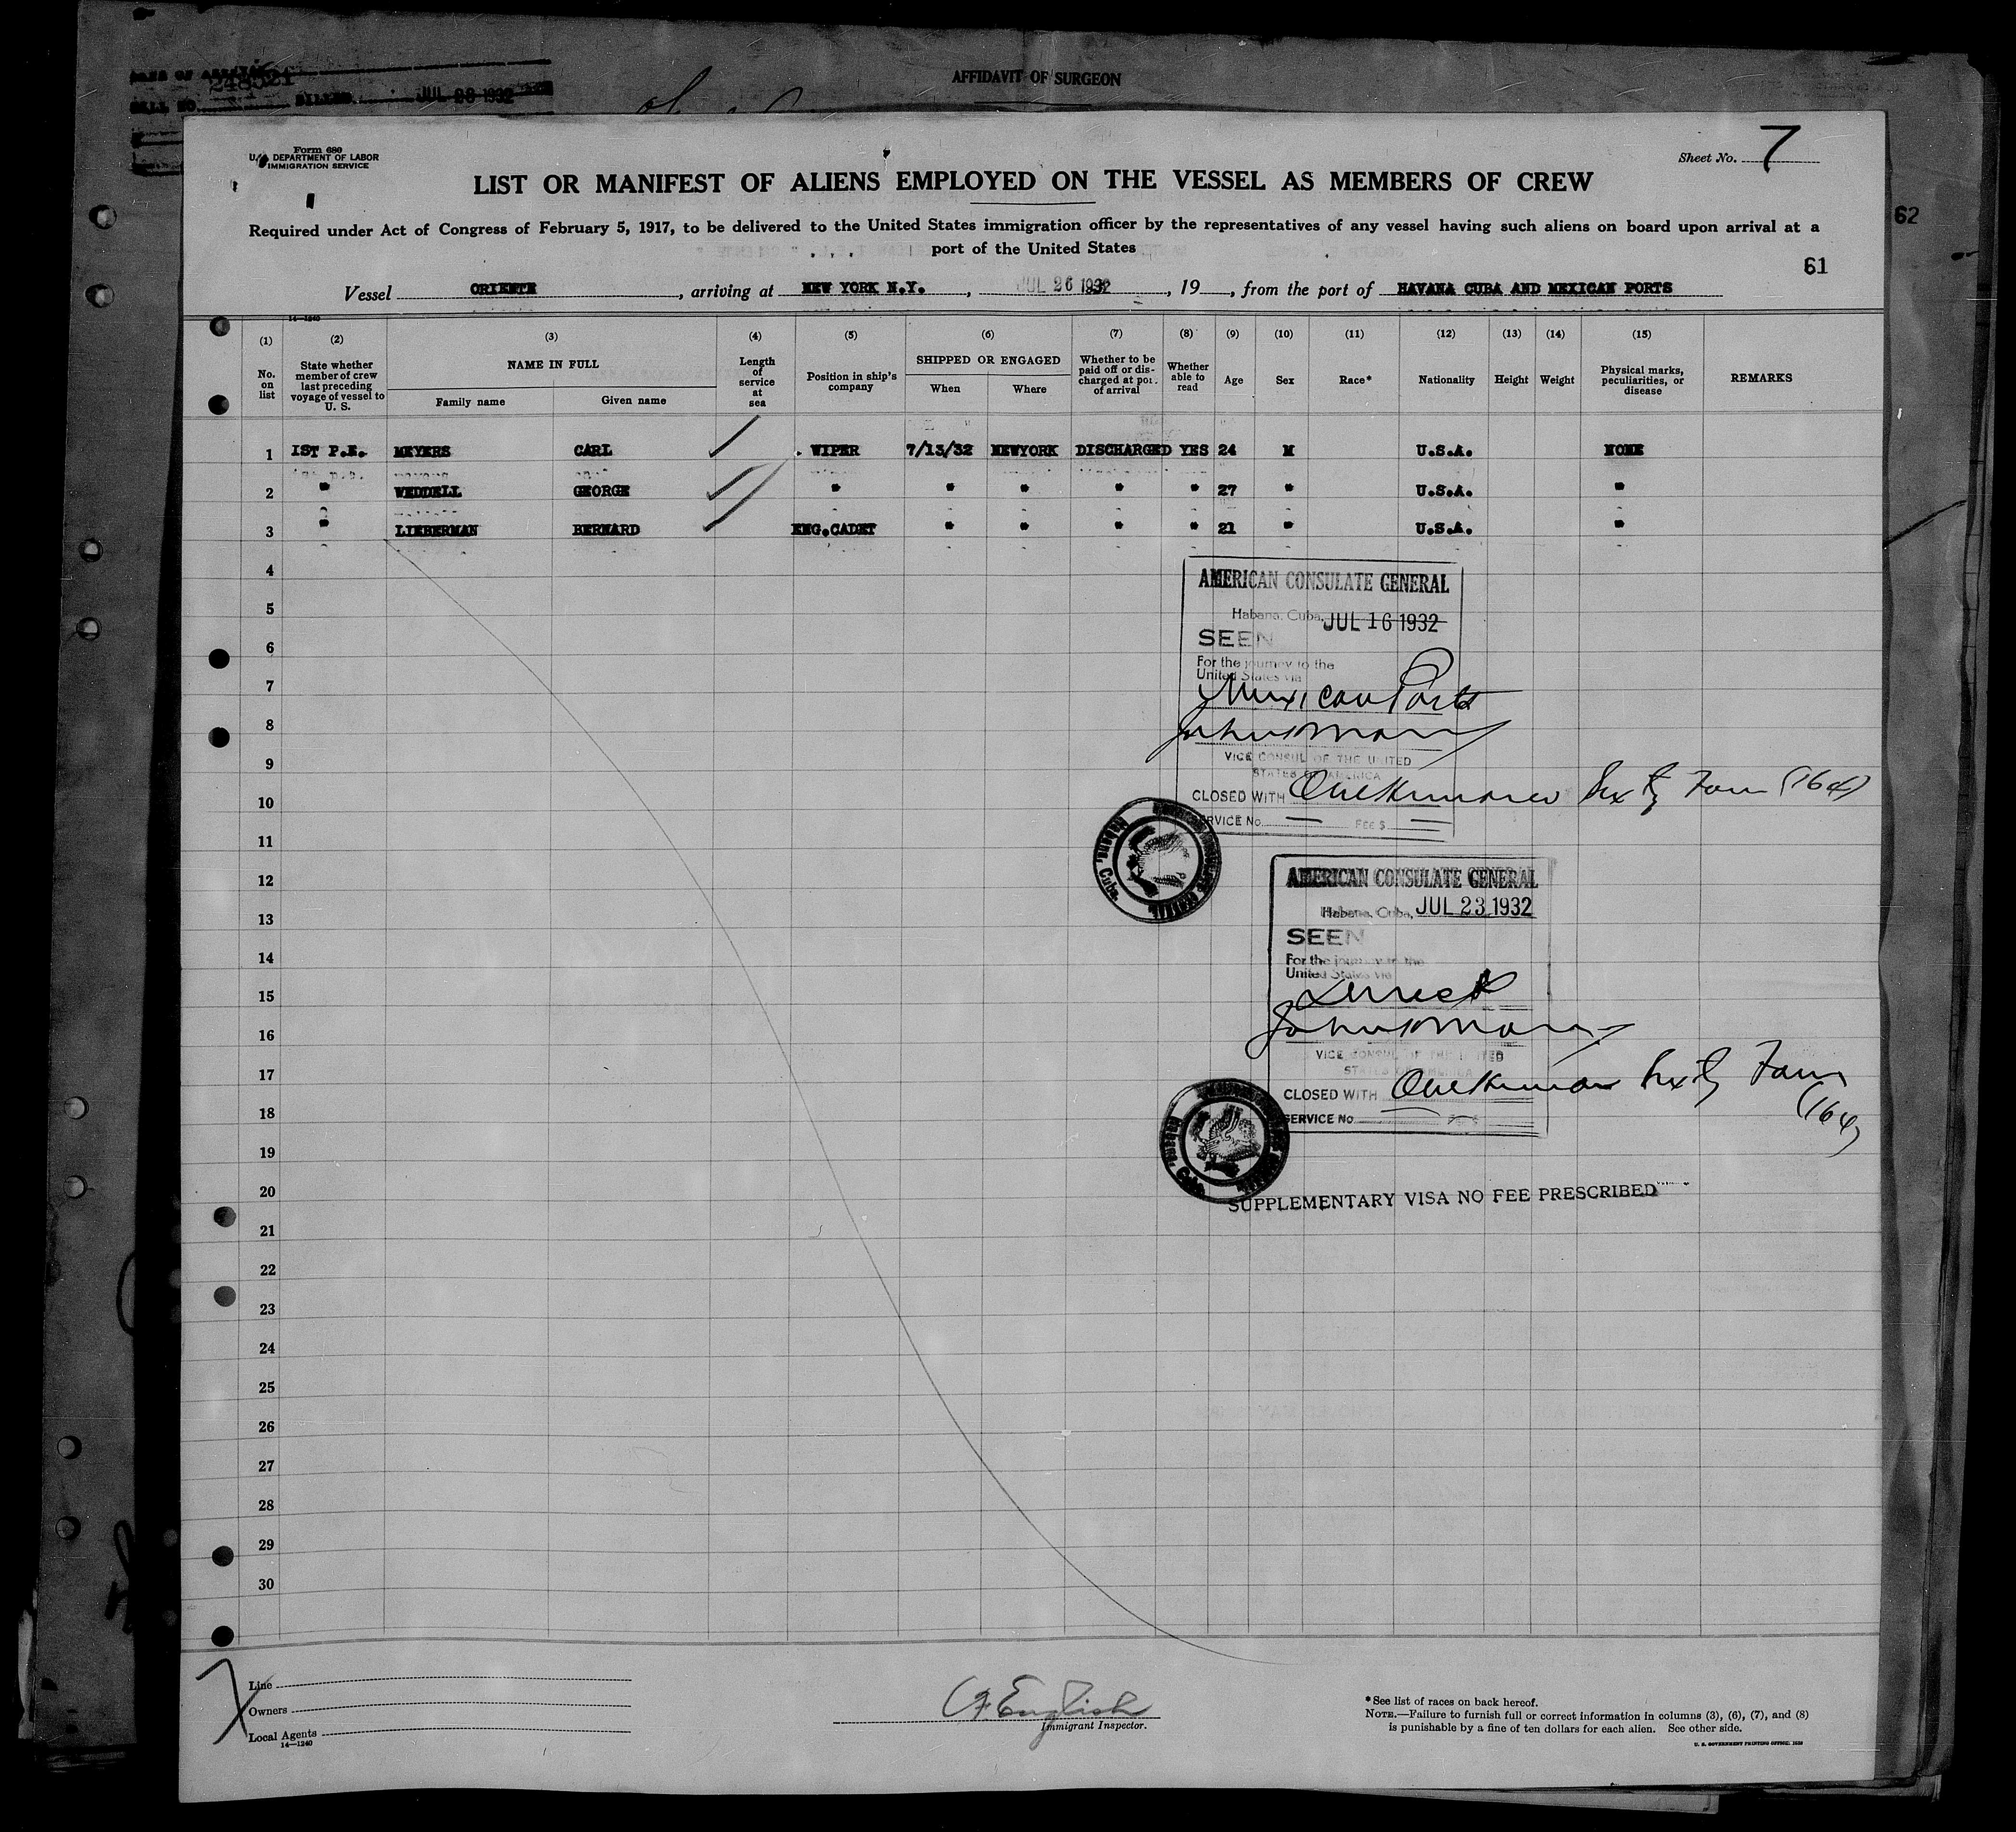 AFFIDAVIT OF SURGEON
248521
JUL 28 1932
Form 680
U. S. DEPARTMENT OF LABOR
IMMIGRATION SERVICE
Sheet No. 7
LIST OR MANIFEST OF ALIENS EMPLOYED ON THE VESSEL AS MEMBERS OF CREW
Required under Act of Congress of February 5, 1917, to be delivered to the United States immigration officer by the representatives of any vessel having such aliens on board upon arrival at a
port of the United States
62
61
Vessel ORIENTE, arriving at NEW YORK N.Y., JUL 26 1932, 19 , from the port of HAVANA CUBA AND MEXICAN PORTS
14—1240
(1) (2) (3) (4) (5) (6) (7) (8) (9) (10) (11) (12) (13) (14) (15)
No. on list
State whether member of crew last preceding voyage of vessel to U. S.
NAME IN FULL
Family name
Given name
Length of service at sea
Position in ship's company
SHIPPED OR ENGAGED
When
Where
Whether to be paid off or discharged at port of arrival
Whether able to read
Age
Sex
Race*
Nationality
Height
Weight
Physical marks, peculiarities, or disease
REMARKS
1 1ST P.E. MEYERS CARL WIPER 7/13/32 NEWYORK DISCHARGED YES 24 M U.S.A. NONE
2 " WEDDELL GEORGE " " " " " 27 " U.S.A. "
3 " LIEBERMAN BERNARD ENG.CADET " " " " 21 " U.S.A. "
4
5
6
7
8
9
10
11
12
13
14
15
16
17
18
19
20
21
22
23
24
25
26
27
28
29
30
AMERICAN CONSULATE GENERAL
Habana, Cuba, JUL 16 1932
SEEN
For the journey to the
United States via
Mexican Ports
VICE CONSUL OF THE UNITED
STATES OF AMERICA
CLOSED WITH One Hundred Sixty Four (164)
SERVICE No. FEE $
Habana, Cuba.
AMERICAN CONSULATE GENERAL
Habana, Cuba, JUL 23 1932
SEEN
For the journey to the
United States via
Direct
VICE CONSUL OF THE UNITED
STATES OF AMERICA
CLOSED WITH One Hundred Sixty Four
(164)
SERVICE No
Habana, Cuba.
SUPPLEMENTARY VISA NO FEE PRESCRIBED
Line
Owners
Local Agents
14—1240
English
Immigrant Inspector.
*See list of races on back hereof.
NOTE.—Failure to furnish full or correct information in columns (3), (6), (7), and (8)
is punishable by a fine of ten dollars for each alien. See other side.
U. S. GOVERNMENT PRINTING OFFICE: